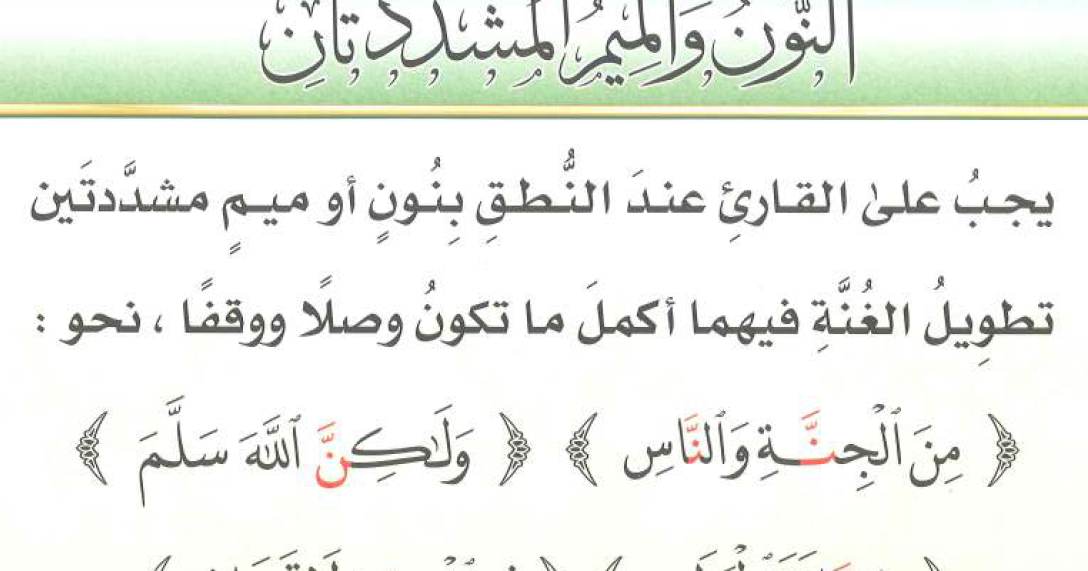 النُّونُ وَالْمِيمُ الْمُشَدَّدَتَانِ
يجبُ علىٰ القارئِ عندَ النُّطقِ بِنُونٍ أو ميمٍ مشدَّدتَين
تطويلُ الغُنَّةِ فيهما أكملَ ما تكونُ وصلًا ووقفًا ، نحو :
﴿ مِنَ ٱلْجِنَّةِ وَٱلنَّاسِ ﴾ ﴿ وَلَٰكِنَّ ٱللَّهَ سَلَّمَ ﴾